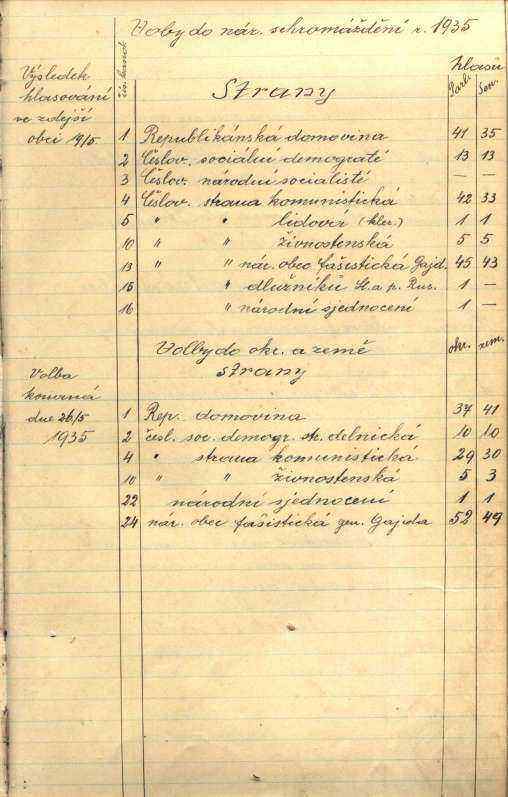 Volby do nár. schromáždění r. 1935
Výsledek
hlasování
ve zdejší
obci 19/5
čís. kand.
Strany
hlasů
Parl. Sen.
1 Republikánská domovina 41 35
2 Českv. sociální demograté 13 13
3 Českv. národní socialisté — —
4 Českv. strana komunistická 42 33
5 " " lidová (kler.) 1 1
10 " " živnostenská 5 5
13 " " nár. obec fašistická Gajd. 45 43
15 " dlužníků Sl. a p. Rus. 1 —
16 " národní sjednocení 1 —
Volby do okr. a země okr. zem.
strany
Volba
konaná
dne 26/5
1935
1 Rep. domovina 37 41
2 česl. soc. demogr. st. delnická 10 10
4 " strana komunistická 29 30
10 " " živnostenská 5 3
22 národní sjednocení 1 1
24 nár. obec fašistická gen. Gajda 52 49